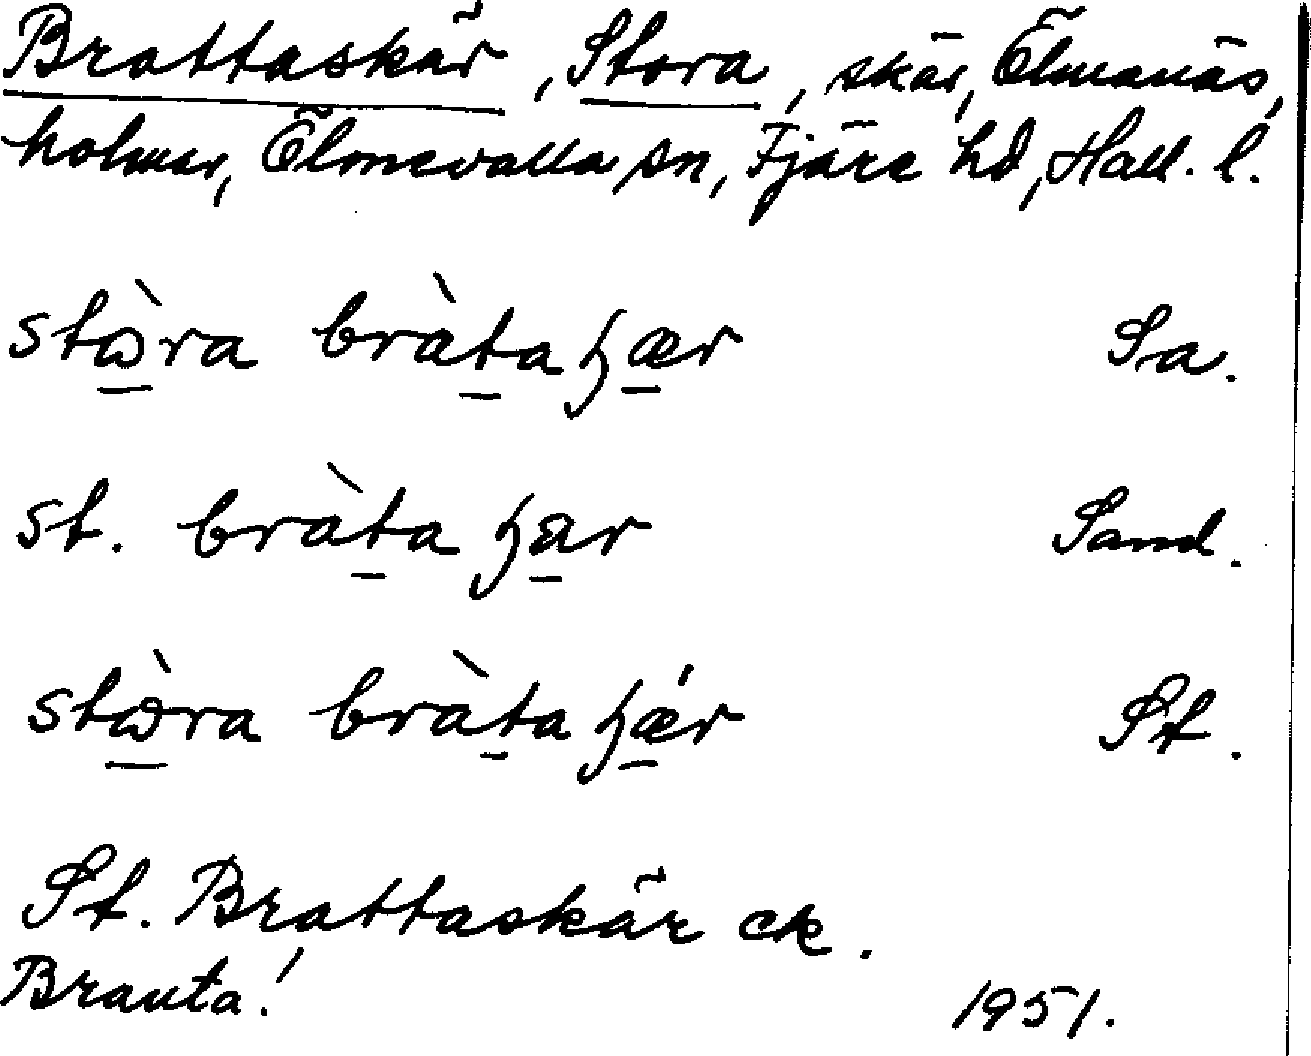 Brattaskär, Stora, skär, Ölmanäs,
holmar, Ölmevalla sn, Fjäre hd, Hall. l.
stɷ̀ra bràtaʒær Sa.
st. bràtaʒar Sand.
stɷ̀ra bràtaʒǽr St.
St. Brattaskär ek.
Branta!
1951.